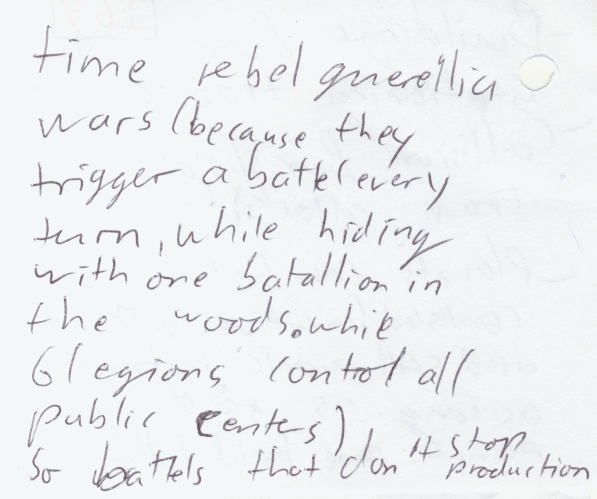 time rebel guerellia
wars (because they
trigger a battel every
turn, while hiding
with one batallion in
the woods. while
6 legions control all
public centers)
So battels that don't stop production